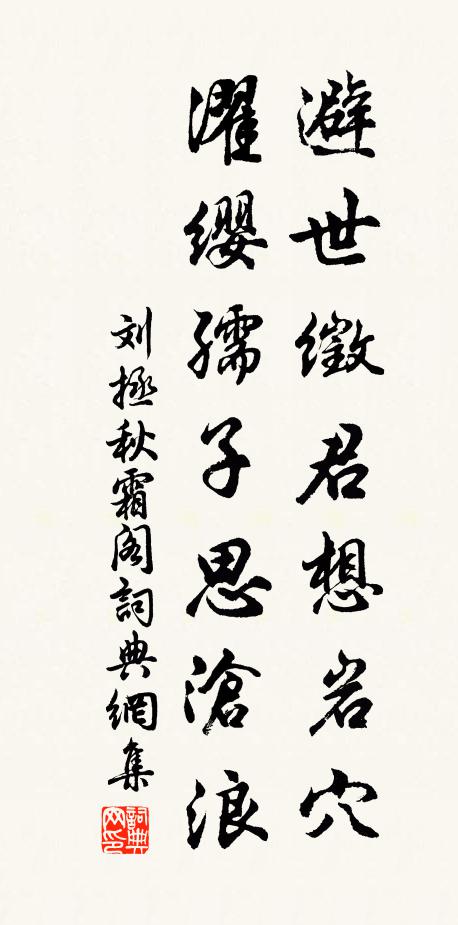 避世徵君想岩穴
濯纓孺子思滄浪
刘拯秋霜阁詞典網集
詞典网印